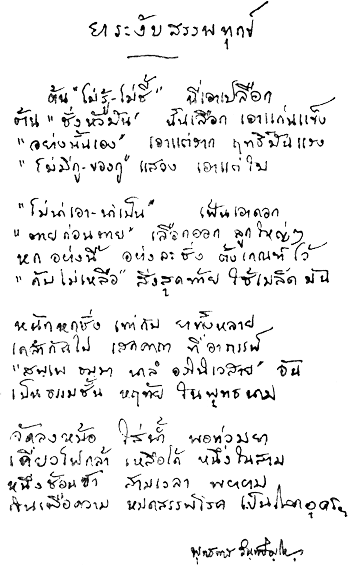 ยาระงับสรรพทุกข์
ต้น "ไม่รู้-ไม่ชี้" นี่เอาเปลือก
ต้น "ชั่งหัวมัน" นั้นเลือก เอาแก่นแข็ง
"อย่างนั้นเอง" เอาแต่ราก ฤทธิ์มันแรง
"ไม่มีกู-ของกู" แสวง เอาแต่ใบ
"ไม่น่าเอา-น่าเป็น" เฟ้นเอาดอก
"ตายก่อนตาย" เลือกออก ลูกใหญ่ๆ
หก อย่างนี้ อย่างละชั่ง ตั้งเกณฑ์ไว้
"ดับไม่เหลือ" สิ่งสุดท้าย ใช้เมล็ดมัน
หนักหกชั่ง เท่ากับ ยาทั้งหลาย
เคล้ากันไป เสกคาถา ที่อาถรรพ์
"สพฺเพ ธมฺมา นาลํ อภินิเวสาย" อัน
เป็นธรรมชั้น หฤทัย ในพุทธนาม
จัดลงหม้อ ใส่น้ำ พอท่วมยา
เคี่ยวไฟกล้า เหลือได้ หนึ่งในสาม
หนึ่งช้อนชา สามเวลา พยายาม
กินเพื่อความ หมดสรรพโรค เป็นโลกอุดรฯ
พุทธทาส อินทปัญโญ